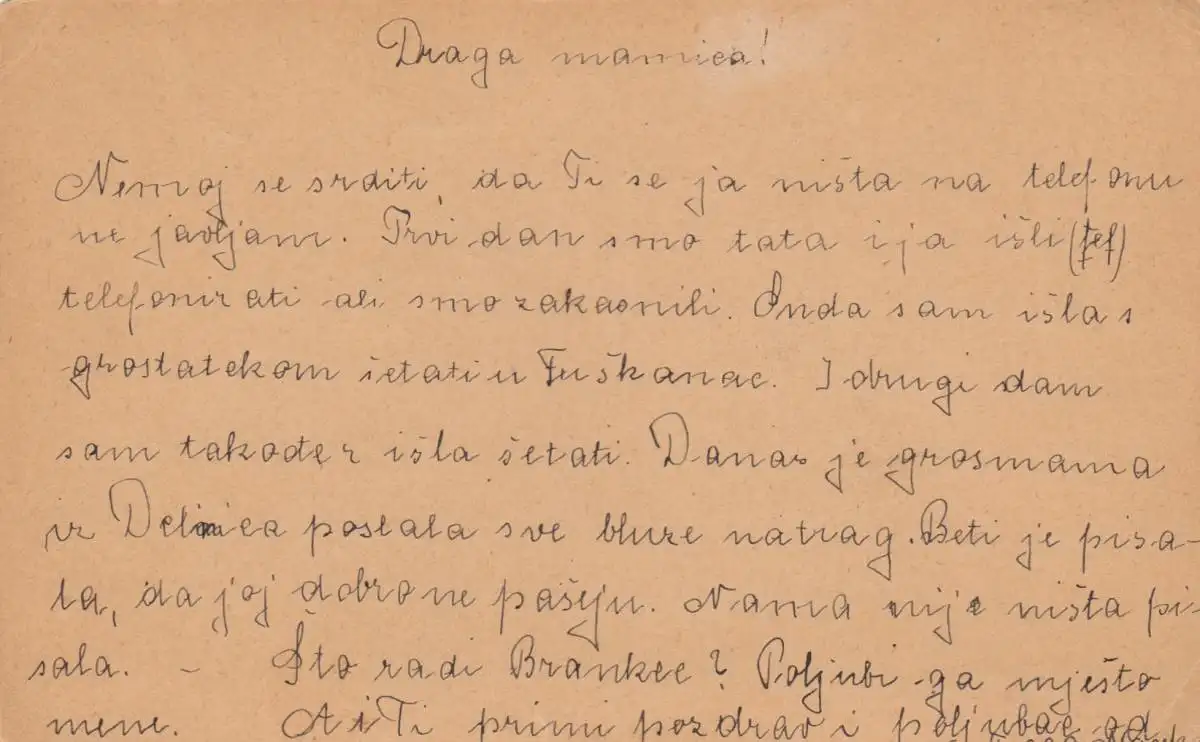 Draga mamica!
Nemoj se srditi, da Ti se ja ništa na telefonu
ne javljam. Prvi dan smo tata i ja išli (tef)
telefonirati ali smo zakasnili. Onda sam išla s
grostatekom šetati u Tuškanac. I drugi dam
sam također išla šetati. Danas je grosmama
iz Delnica poslala sve bluze natrag. Beti je pisa-
la, da joj dobro ne pašeju. Nama nije ništa pi-
sala. - Što radi Brankec? Poljubi ga mješto
mene. A i Ti primi pozdrav i poljubac od